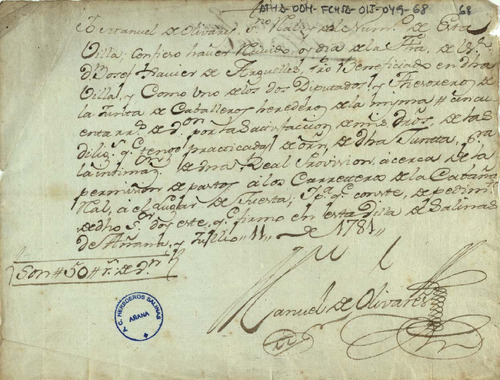 ATHA-DOH-FCHSA-015-049-68 68
Manuel de Olivares, SSno Rl y de Numro de Esta
Villa, Confieso haver Recivido oy dia de la fha, de Dn
Josef Xavier de Arguelles, Pro Beneficiado en dha
Villa, y Como uno de los dos Diputados, y Thesorero de
la Junta de Cavalleros herederos de la misma, cincu
enta rrs de von por la Satisfaccion de mis dros de las
diligs qe tengo practicadas de orn de dha Juntta, en
la intimaon de una Real Provision, acerca de la
permision de pastos a los Carreteros de la Cabaña
Rl, a el lugar de Puerta, y pa qe conste, de pedimto
de dho Sor doy este, qe firmo en esta Villa de Salinas
de Añana, y Jullio 11, de 1781,,
Son #50# rs de vn
Manuel de Olivares
C. HEREDEROS SALINAS
AÑANA